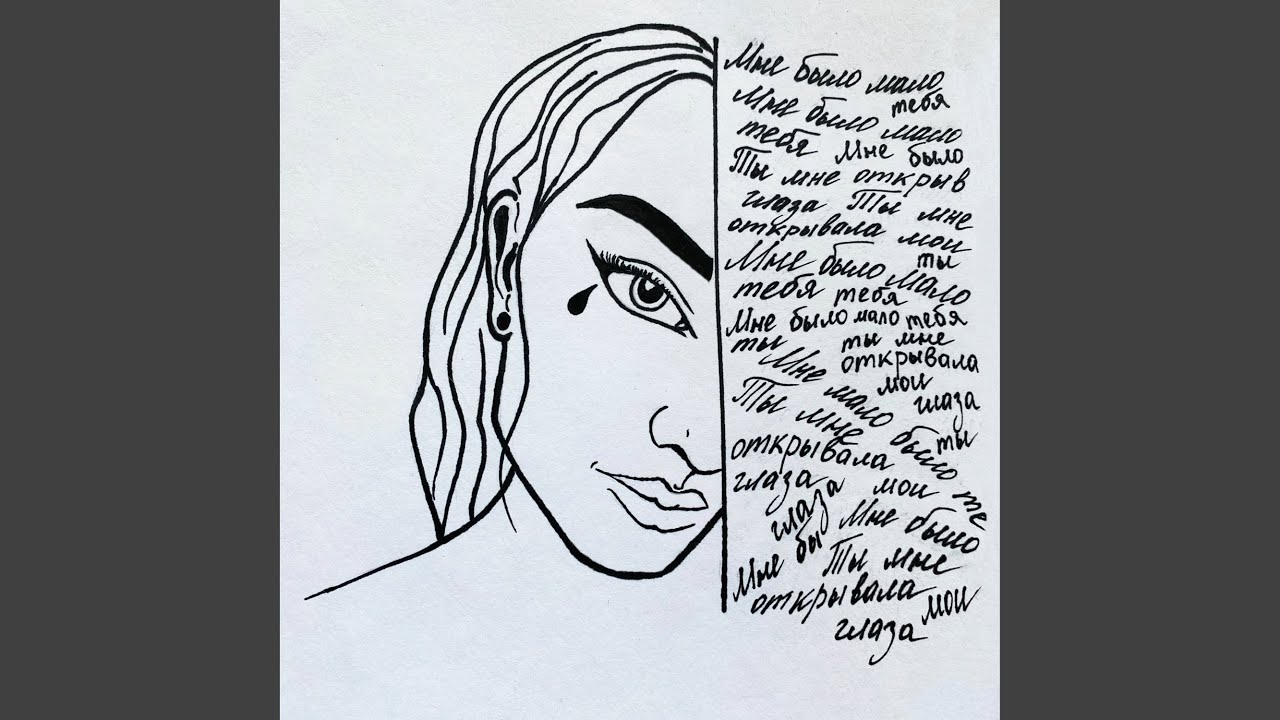 Мне было мало
тебя
Мне было мало
тебя Мне было
Ты мне открыв
глаза Ты мне
открывала мои
ты
Мне было мало
тебя тебя
Мне было мало тебя
ты ты мне
открывала
Мне мало мои
глаза
Ты мне было ты
открывала
глаза мои те
глаза Мне было
Мне бы Ты мне
открывала мои
глаза